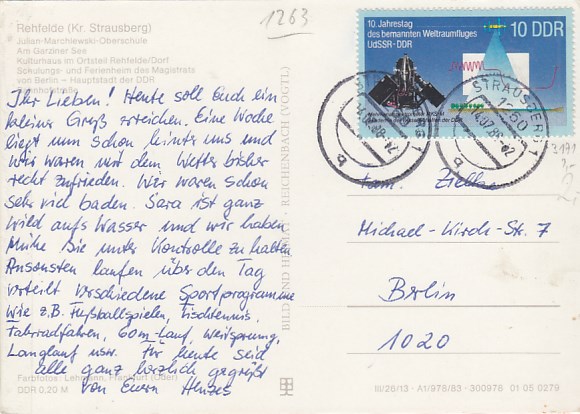 1263
Rehfelde (Kr. Strausberg)
Julian-Marchlewski-Oberschule
Am Garziner See
Kulturhaus im Ortsteil Rehfelde/Dorf
Schulungs- und Ferienheim des Magistrats
von Berlin – Hauptstadt der DDR
Bahnhofstraße
Ihr Lieben! Heute soll Euch ein
kleiner Gruß erreichen. Eine Woche
liegt nun schon hinter uns und
wir waren mit dem Wetter bisher
recht zufrieden. Wir waren schon
sehr viel baden. Sara ist ganz
wild aufs Wasser und wir haben
Mühe sie unter Kontrolle zu halten
Ansonsten laufen über den Tag
verteilt verschiedene Sportprogramme
wie z.B. Fußballspielen, Tischtennis,
Fahrradfahren, 60m-Lauf, Weitsprung,
Langlauf usw. Für heute seid
alle ganz herzlich gegrüßt
von Euern Henzes
Farbfotos: Lehmann, Frankfurt (Oder)
DDR 0.20 M
BILD UND HEIMAT · REICHENBACH (VOGTL)
10. Jahrestag
des bemannten Weltraumfluges
UdSSR-DDR
10 DDR
STRAUSBERG 1
b
3191
Fam.
Michael-Kirch-Str. 7
Berlin
1020
III/26/13 A1/978/83 300978 01 05 0279